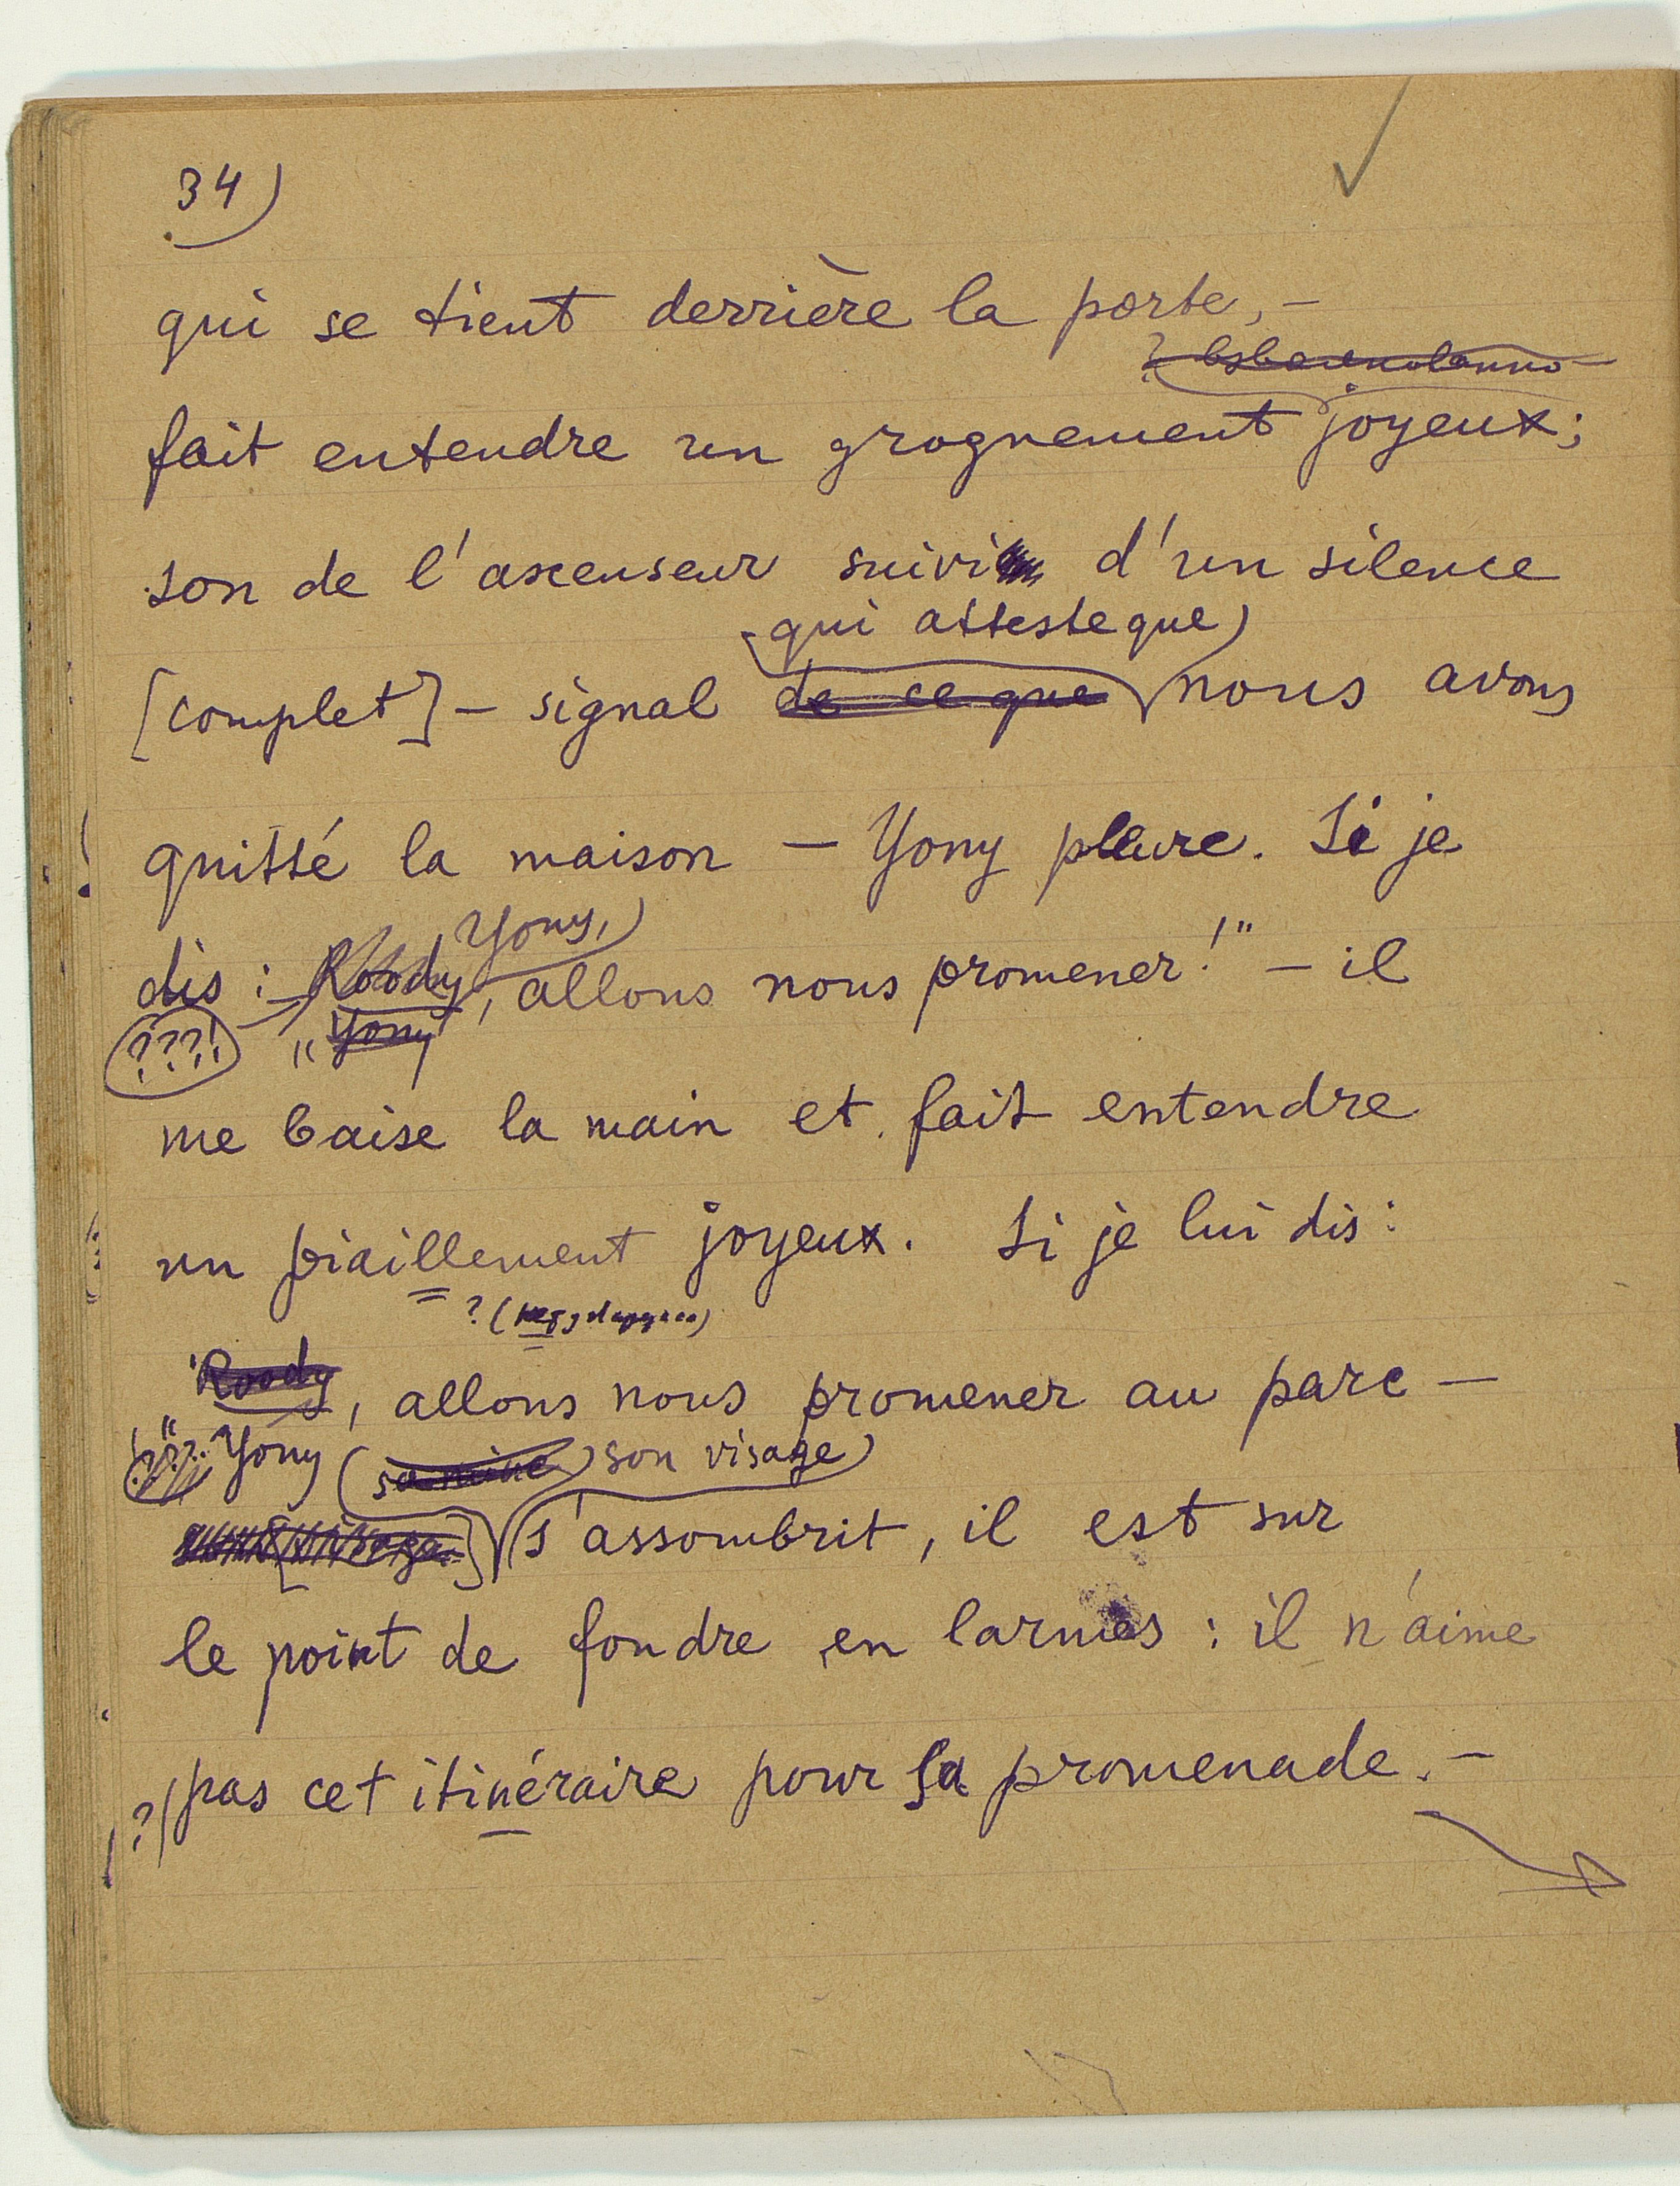 34)
qui se tient derrière la porte, –
fait entendre un grognement joyeux;
son de l'ascenseur suivi d'un silence
qui atteste que
[complet] – signal de ce que nous avons
quitté la maison – Yony pleure. Si je
Yony,
dis : Roody, allons nous promener!" – il
???! " Yony
me baise la main et fait entendre
un piaillement joyeux. Si je lui dis:
?
Roody, allons nous promener au parc –
" Yony (sa mine) son visage)
s'assombrit, il est sur
le point de fondre en larmes : il n'aime
?) pas cet itinéraire pour sa promenade. –